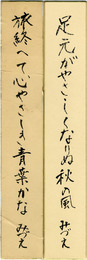 足元がやさしくなりぬ秋の風 みづえ
旅終へて心やさしき青葉かな みづえ